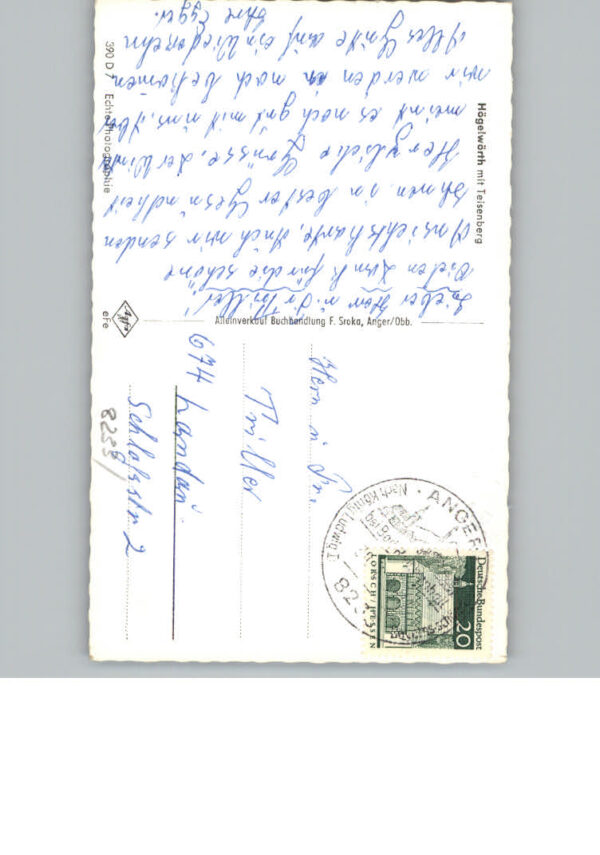 Högelwörth mit Teisenberg
Lieber Herr u. Fr Triller!
Vielen Dank für die schöne
Ansichtskarte, Auch wir senden
Ihnen in bester Gesundheit
Herzliche Grüsse, der Wind
meint es noch gut mit uns,
wir werden noch bekommen
Alles Gute auf ein Wiedersehn
Ihre Egger.
390 D 7 Echte Photographie
Alleinverkauf Buchhandlung F. Sroka, Anger/Obb.
Agfa
eFe
Herrn u. Fr.
Triller
674 Landau
Schloßstr 2
8233
ANGER
Nach König Ludwig I
Deutsche Bundespost
20
LORSCH/HESSEN